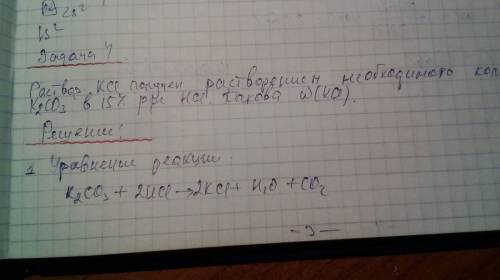 1s²
Задача 4
Раствор KCl получен растворением необходимого кол
K₂CO₃ в 15% р-ре HCl какова ω(KCl).
Решение:
Уравнение реакции.
K₂CO₃ + 2HCl → 2KCl + H₂O + CO₂
- 3 -